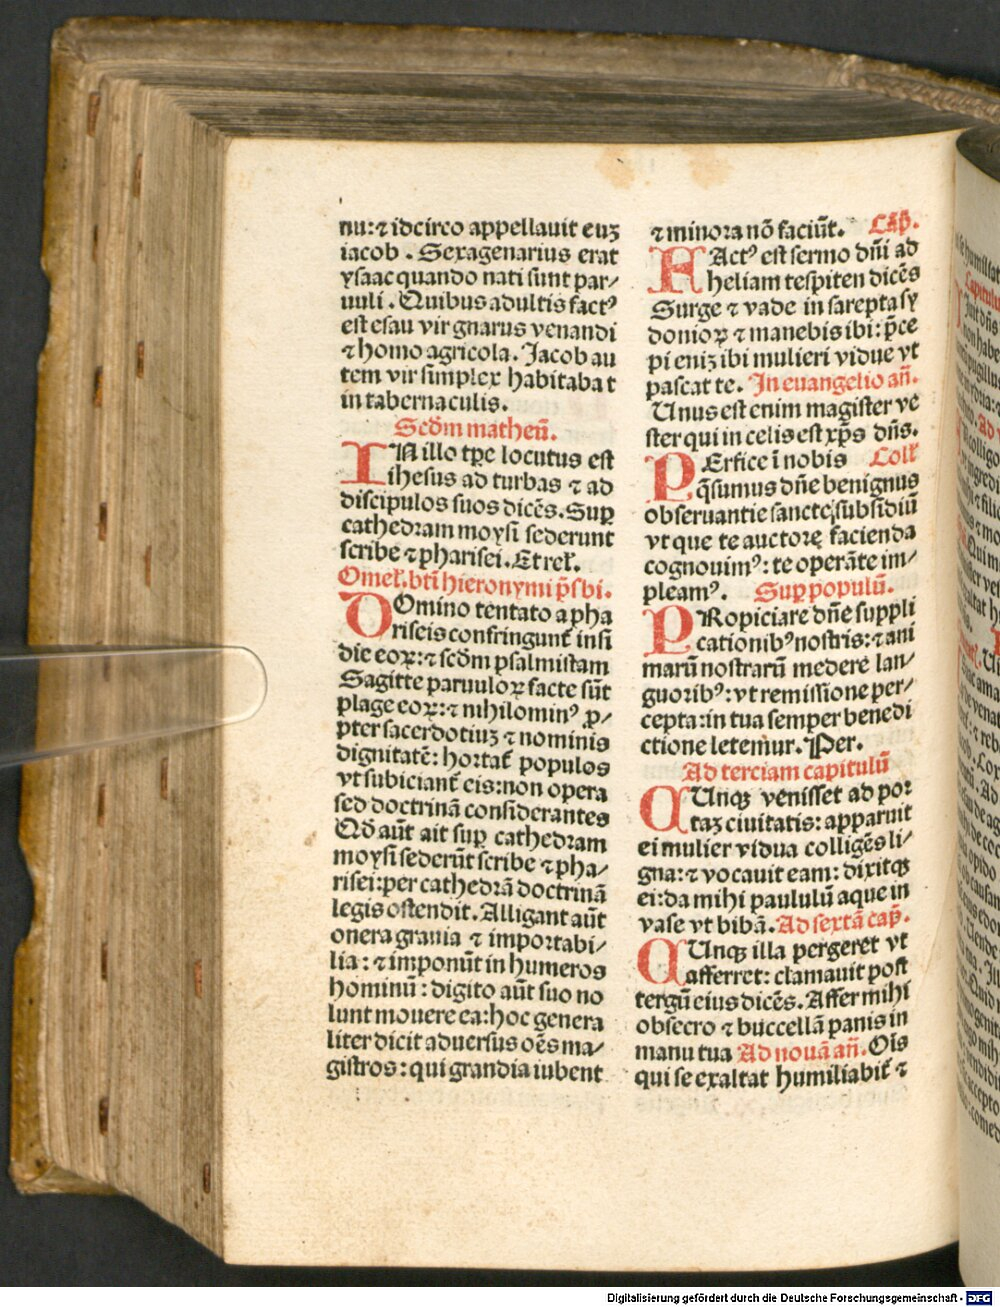 nu:⁊ idcirco appellauit euꝫ
iacob . Sexagenarius erat
ysaac quando nati sunt par⸗
uuli . Quibus adultis factꝰ
est esau vir gnarus venandi
⁊ homo agricola. Jacob au
tem vir simplex habitabat
in tabernaculis.
Scd̄m matheū.
IN illo tp̄e locutus est
ihesus ad turbas ⁊ ad
discipulos suos dicēs. Suꝑ
cathedram moysi sederunt
scribe ⁊ pharisei. Et rel̄.
Omel̄. bti̅ hieronymi p̄sbi.
DOmino tentato a pha
riseis confringunt̄ insi
die eoꝝ:⁊ scd̄m psalmistam
Sagitte paruuloꝝ facte sūt
plage eoꝝ:⁊ nihilominꝰ ꝓ⸗
pter sacerdotiuꝫ ⁊ nominis
dignitatē: hortat̄ populos
vt subiciant̄ eis:non opera
sed doctrinā considerantes
Qd̄ aūt ait suꝑ cathedram
moysi sederūt scribe ⁊ pha⸗
risei:per cathedrā doctrinā
legis ostendit. Alligant aūt
onera grauia ⁊ importabi⸗
lia: ⁊ imponūt in humeros
hominū: digito aūt suo no
lunt mouere ea:hoc genera
liter dicit aduersus oēs ma⸗
gistros: qui grandia iubent
⁊ minora nō faciūt. Cap̄.
FActꝰ est sermo dn̄i ad
heliam tespiten dicēs
Surge ⁊ vade in sarepta sy
donioꝝ ⁊ manebis ibi: p̄ce
pi eniꝫ ibi mulieri vidue vt
pascat te. In euangelio an̄.
Unus est enim magister ve
ster qui in celis est xp̄s dn̄s.
PErfice ī nobis Coll̄
q̄sumus dn̄e benignus
obseruantie sancte subsidiū
vt que te auctore facienda
cognouimꝰ: te operāte im⸗
pleamꝰ. Suꝑ populū.
PRopiciare dn̄e suppli
cationibꝰ nostris: ⁊ ani
marū nostrarū medere lan⸗
guoribꝰ: vt remissione per⸗
cepta: in tua semper benedi
ctione letemur. Per.
Ad terciam capitulū
CUnqꝫ venisset ad por
taꝫ ciuitatis: apparuit
ei mulier vidua colligēs li⸗
gna: ⁊ vocauit eam: dixitqꝫ
ei: da mihi paululū aque in
vase vt bibā. Ad sextā cap̄.
CUnqꝫ illa pergeret vt
afferret: clamauit post
tergū eius dicēs. Affer mihi
obsecro ⁊ buccellā panis in
manu tua Ad nouā an̄. Oīs
qui se exaltat humiliabit̄ ⁊
Digitalisierung gefördert durch die Deutsche Forschungsgemeinschaft - DFG